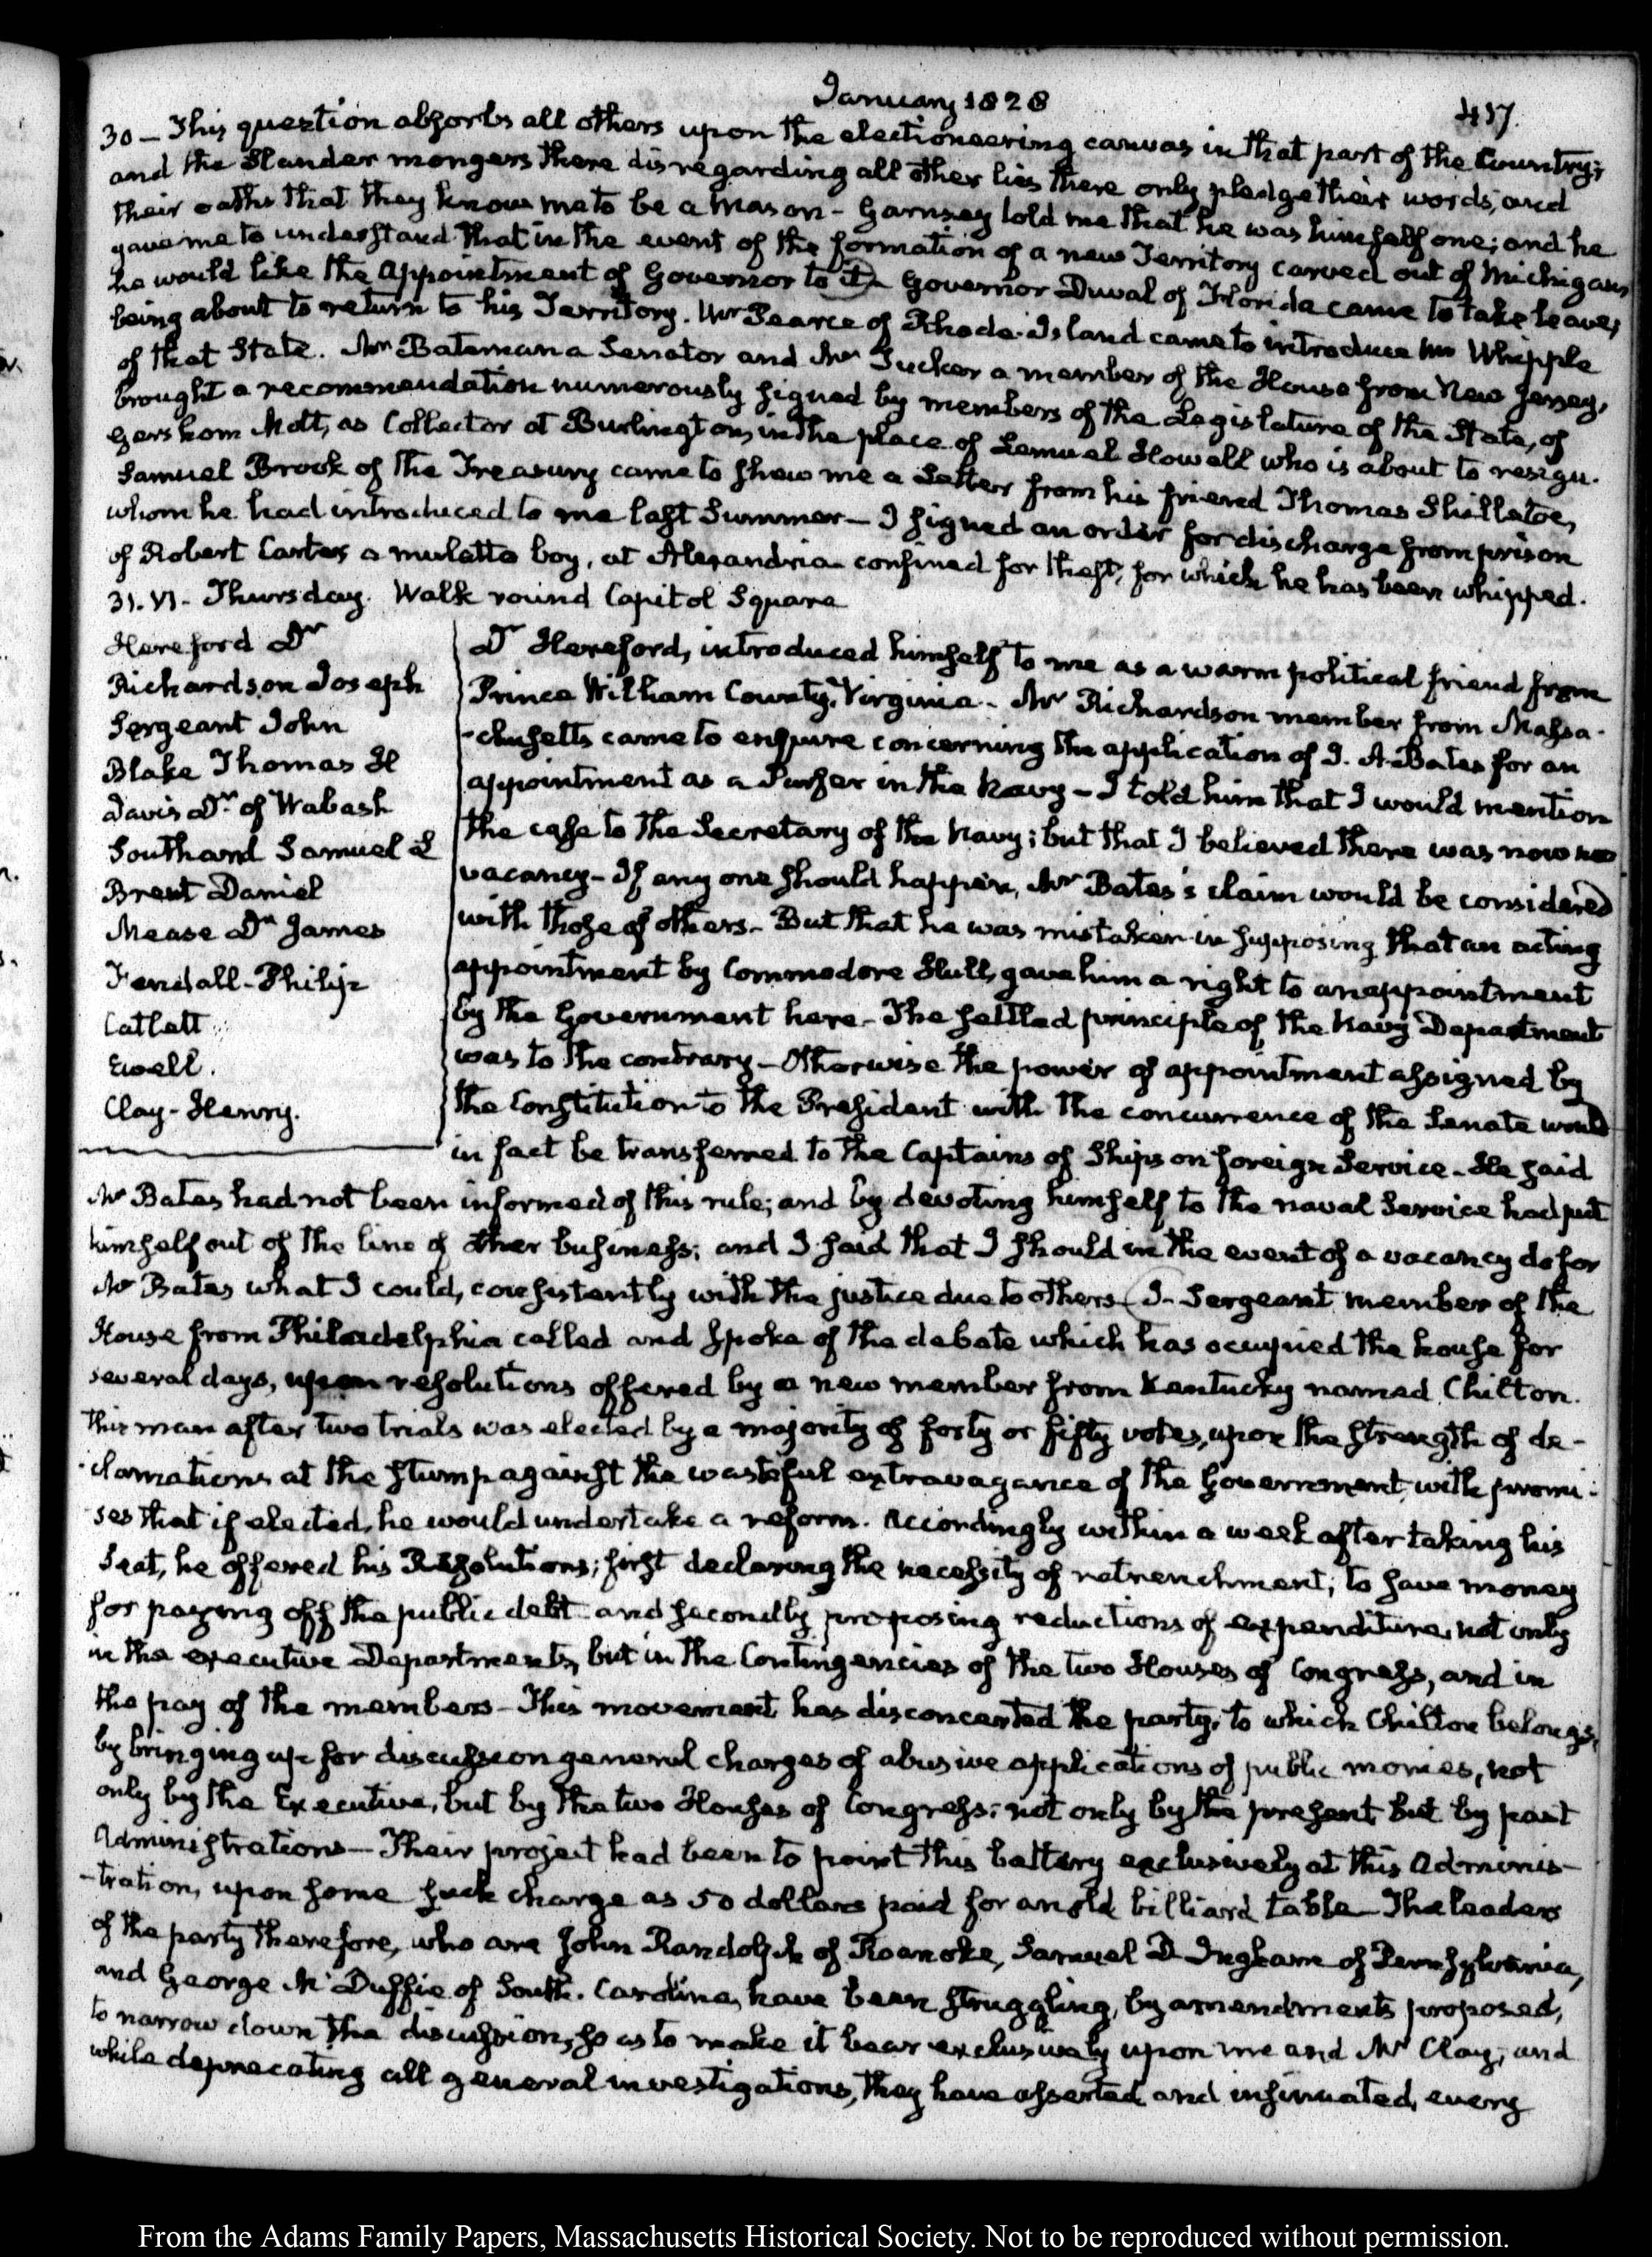 January 1828
417.
30 – This question absorbs all others upon the electioneering canvas in that part of the Country;
and the Slander mongers there disregarding all other lies there only pledge their words, and
their oaths that they know me to be a Mason – Garnsey told me that he was himself one; and he
gave me to understand that in the event of the formation of a new Territory carved out of Michigan
he would like the Appointment of Governor to it – Governor Duval of Florida came to take leave,
being about to return to his Territory. Mr Pearce of Rhode-Island came to introduce Mr Whipple
of that State. Mr Bateman a Senator and Mr Tucker a member of the House from New Jersey,
brought a recommendation numerously signed by members of the Legislature of the State, of
Gershom Mott, as Collector at Burlington, in the place of Lemuel Howell who is about to resign.
Samuel Brook of the Treasury came to shew me a Letter from his friend Thomas Shillitoe,
whom he had introduced to me last Summer – I signed an order for discharge from prison
of Robert Carter, a mulatto boy, at Alexandria confined for theft, for which he has been whipped.
31. VI. Thursday. Walk round Capitol Square
Hereford Dr
Richardson Joseph
Sergeant John
Blake Thomas H
Davis Dr of Wabash
Southard Samuel L
Brent Daniel
Mease Dr James
Fendall – Philip
Catlett
Ewell.
Clay – Henry.
Dr Hereford, introduced himself to me as a warm political friend from
Prince William County, Virginia – Mr Richardson member from Massa-
-chusetts came to enquire concerning the application of J. A. Bates for an
appointment as a Purser in the Navy – I told him that I would mention
the case to the Secretary of the Navy; but that I believed there was now no
vacancy – If any one should happen, Mr Bates's claim would be considered
with those of others – But that he was mistaken in supposing that an acting
appointment by Commodore Hull, gave him a right to an appointment
by the Government here – The settled principle of the Navy Department
was to the contrary – Otherwise the power of appointment assigned by
the Constitution to the President with the concurrence of the Senate would
in fact be transferred to the Captains of Ships on foreign Service – He said
Mr Bates had not been informed of this rule; and by devoting himself to the naval Service had put
himself out of the line of other business; and I said that I should in the event of a vacancy do for
Mr Bates what I could, consistently with the justice due to others – J. Sergeant member of the
House from Philadelphia called and spoke of the debate which has occupied the house for
several days, upon resolutions offered by a new member from Kentucky named Chilton.
This man after two trials was elected by a majority of forty or fifty votes, upon the strength of de-
-clamations at the stump against the wasteful extravagance of the Government, with promi-
ses that if elected, he would undertake a reform. Accordingly within a week after taking his
Seat, he offered his Resolutions; first declaring the necessity of retrenchment; to save money
for paying off the public debt and secondly proposing reductions of expenditure, not only
in the executive Departments, but in the Contingencies of the two Houses of Congress, and in
the pay of the members – This movement has disconcerted the party, to which Chilton belongs,
by bringing up for discussion general charges of abusive applications of public monies, not
only by the Executive, but by the two Houses of Congress; not only by the present but by past
Administrations – Their project had been to point this battery exclusively at this Adminis-
-tration, upon some such charge as 50 dollars paid for an old billiard table – The leaders
of the party therefore, who are John Randolph of Roanoke, Samuel D Ingham of Pennsylvania,
and George McDuffie of South. Carolina, have been struggling, by amendments proposed,
to narrow down the discussion, so as to make it bear exclusively upon me and Mr Clay, and
while deprecating all general investigations, they have asserted and insinuated, every
From the Adams Family Papers, Massachusetts Historical Society. Not to be reproduced without permission.